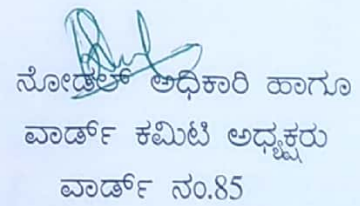 ನೋಡಲ್ ಅಧಿಕಾರಿ ಹಾಗೂ
ವಾರ್ಡ್ ಕಮಿಟಿ ಅಧ್ಯಕ್ಷರು
ವಾರ್ಡ್ ನಂ.85